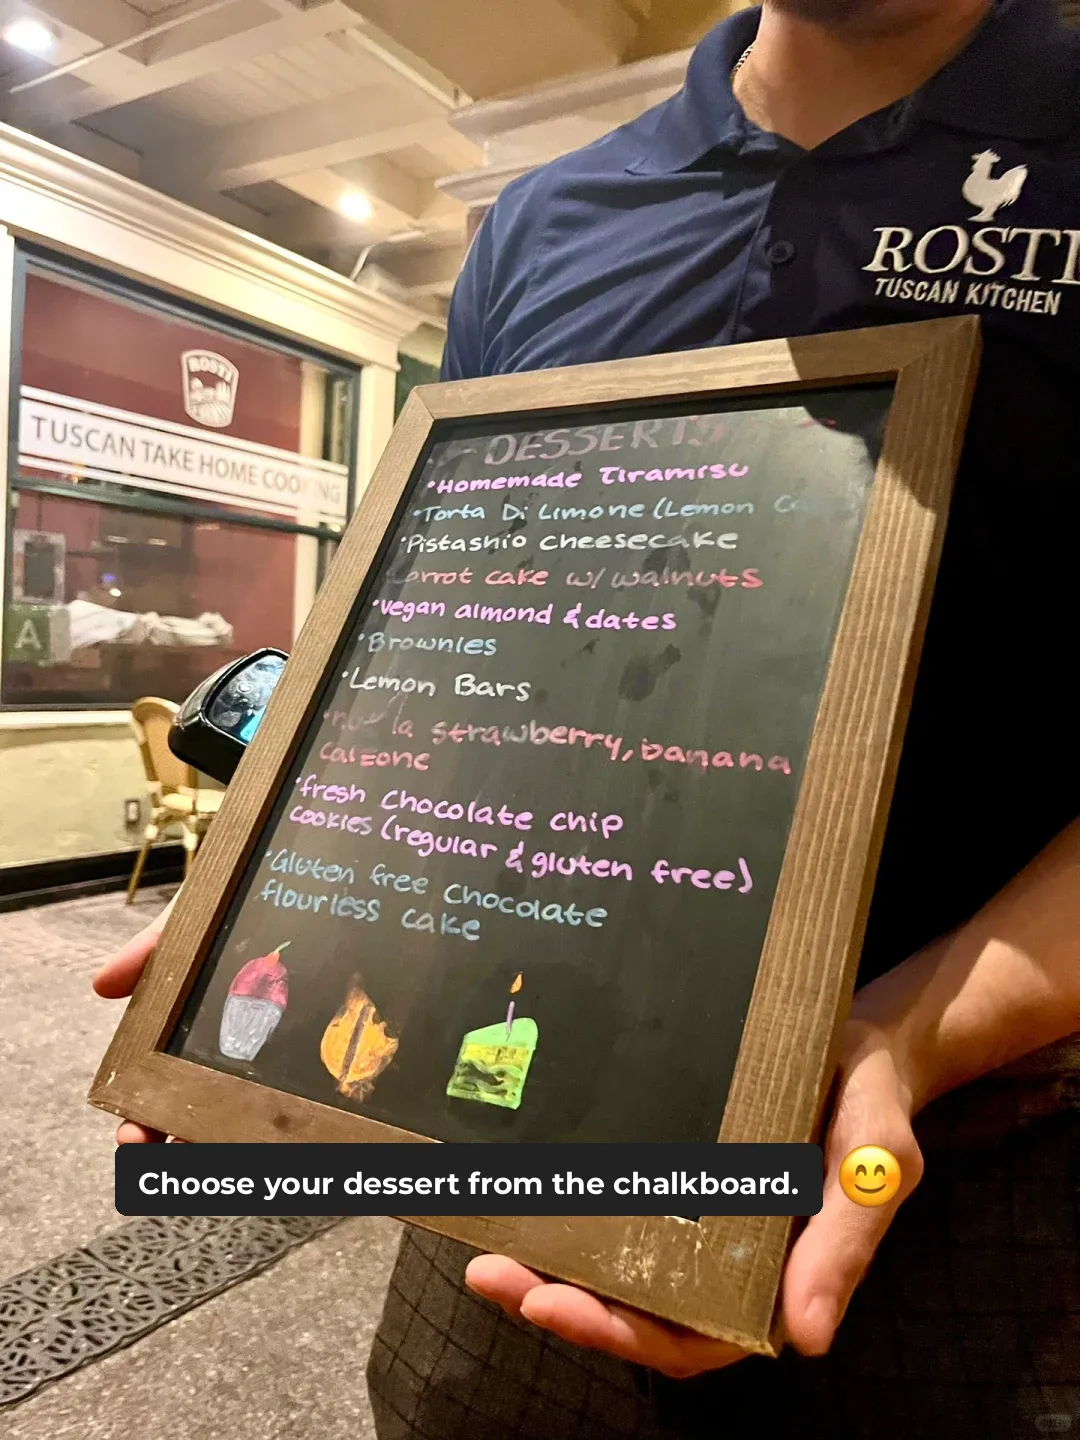 ROSTI
TUSCAN KITCHEN
ROSTI
TUSCAN TAKE HOME COOKING
A
DESSERTS
•Homemade Tiramisu
•Torta Di Limone (Lemon
•Pistashio cheesecake
carrot cake w/ walnuts
•vegan almond & dates
•Brownies
•Lemon Bars
la strawberry, banana
calzone
•fresh Chocolate chip
cookies (regular & gluten free)
•Gluten free Chocolate
flourless cake
Choose your dessert from the chalkboard. 😊